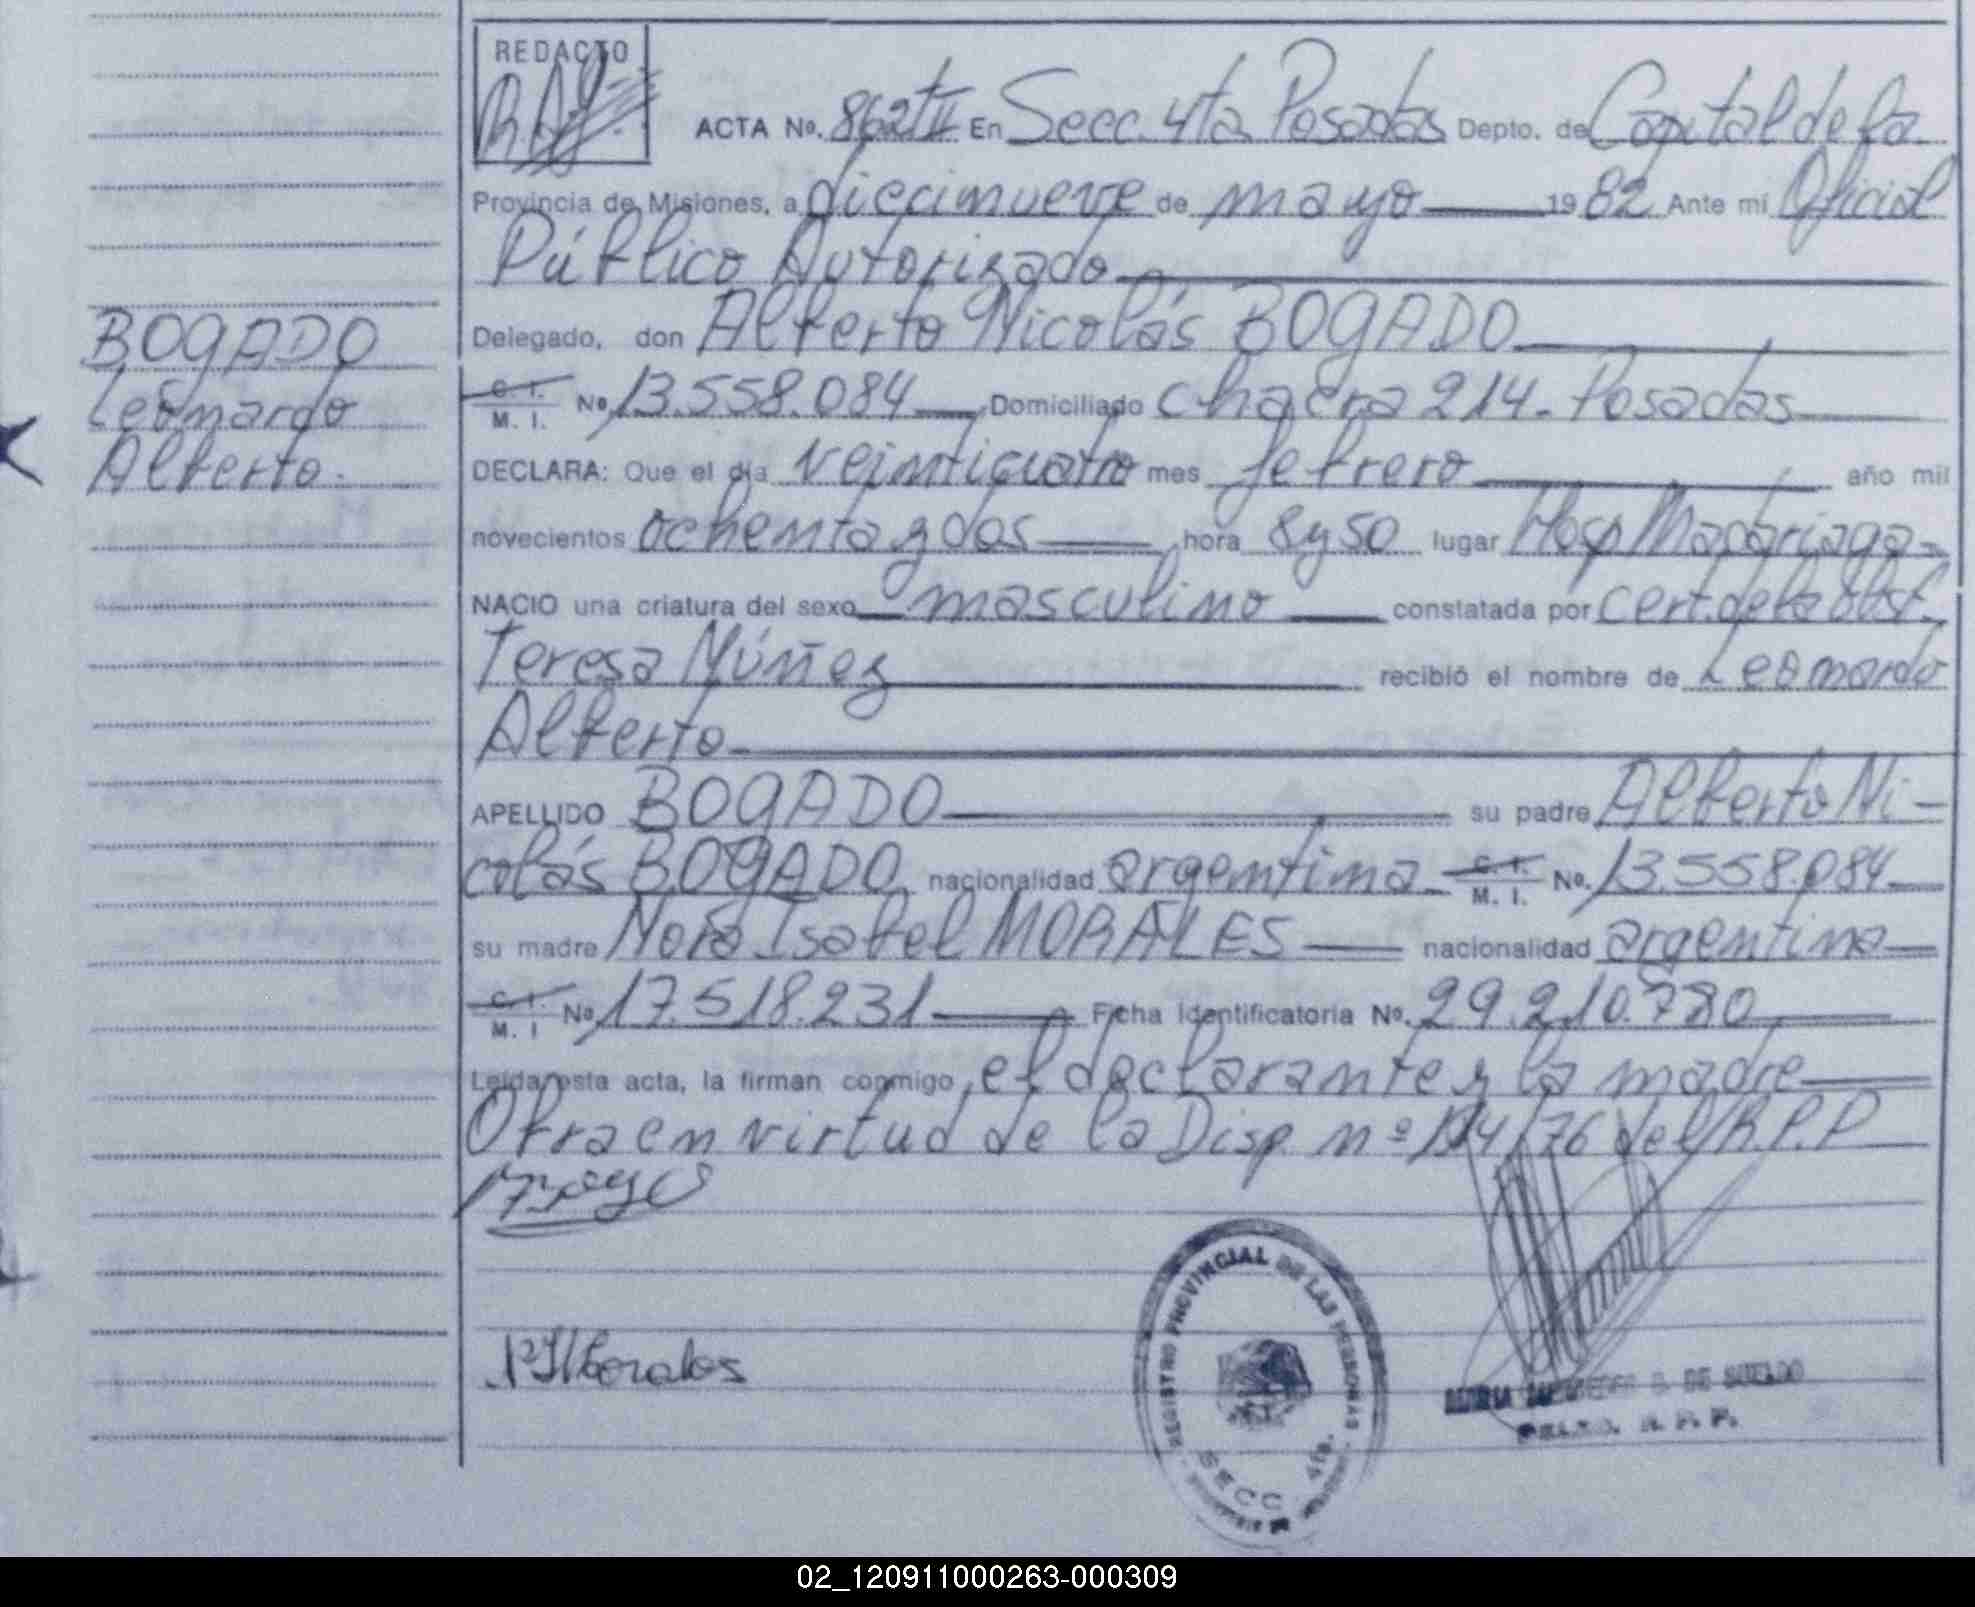 REDACTO
ACTA No. 862 T II En Secc. 4ta Posadas Depto. de Capital de la
Provincia de Misiones, a diecinueve de mayo 1982 Ante mí Oficial
Público Autorizado
Delegado, don Alberto Nicolás BOGADO
BOGADO
Leonardo
Alberto.
C. I.
M. I. No 13.558.084 Domiciliado chacra 214. Posadas
DECLARA: Que el día veinticuatro mes febrero año mil
novecientos ochenta y dos hora 8 y 50 lugar Hosp Madariaga-
NACIO una criatura del sexo masculino constatada por cert. de la obst.
Teresa Núñez recibió el nombre de Leonardo
Alberto
APELLIDO BOGADO su padre Alberto Ni-
colás BOGADO nacionalidad argentina C. I. M. I. No. 13.558.084
su madre Nora Isabel MORALES nacionalidad argentina
C. I. M. I No 17.518.231 Ficha Identificatoria No. 29.210.780
Leída esta acta, la firman conmigo, el declarante y la madre
Obra en virtud de la Disp. nº 194/76 del R.P.P
N I Morales
REGISTRO PROVINCIAL DE LAS PERSONAS
SECC 4ta.
MISIONES
DE SUELDO
R. P. P.
02_120911000263-000309